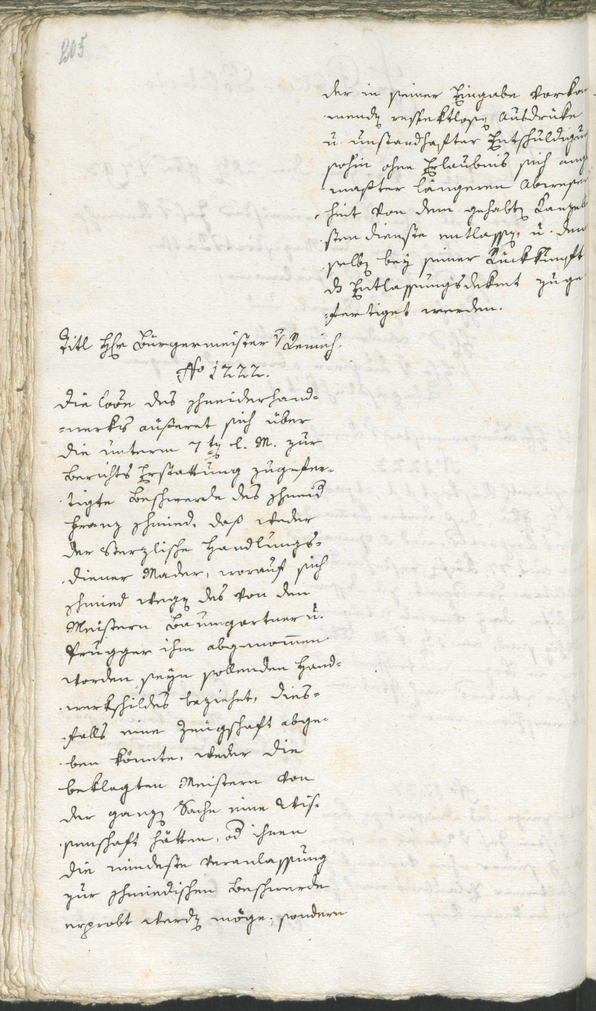 205
der in seiner Eingabe vorko
mendꝫ respektlosꝫ Ausdrüke
u. unstandhafter Entschuldigun
sohin ohne Erlaubnis sich ang
maßter längeren Abwesen
heit von dem gehabtꝫ Kanzel
sten dienste entlassꝫ, u. dem
selbꝫ bey seiner Rückkunft
ds Entlassungsdekret zuge
fertiget werden.
Titl Hr Bürgermeister v Remich.
No 1222.
Die Löbe des Schneiderhand-
-werks äußeret sich über
die unterm 7tꝫ l. M. zur
Berichts Erstattung zugefer-
tigte Beschwerde des Schmid
Franz Schmied, daß weder
der Sterzlische Handlungs-
diener Mader, worauf sich
Schmied wegꝫ des von den
Meistern Baumgartner u.
Prugger ihm abgenommen
worden seyn sollenden Hand-
-werksschildes beziehet, dies-
-falls eine Zeugschaft abge-
ben könnte, weder die
beklagten Meistern von
der ganzꝫ Sache eine Wis-
senschaft hätten, od ihnen
die mindeste Veranlassung
zur Schmiedischen Beschwerde
erprobt werdꝫ möge, sondern